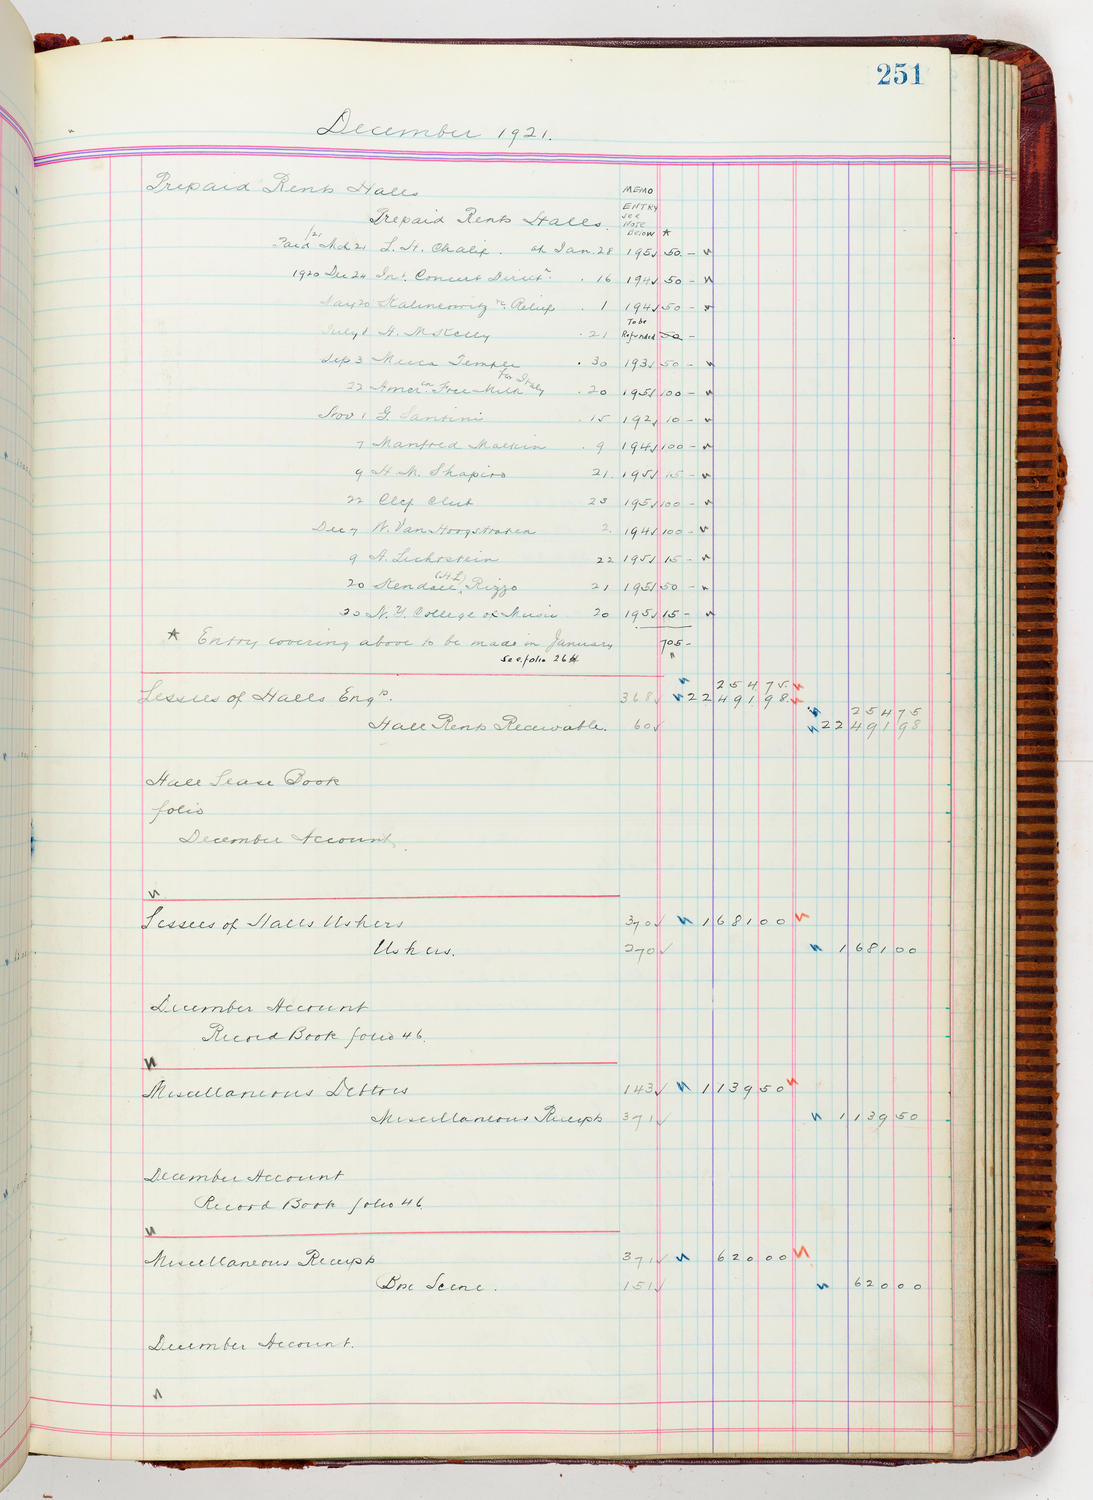 251
December 1921.
Prepaid Rents Halls
MEMO
ENTRY
see
NOTE
Below *
Prepaid Rents Halls.
Paid /21 Md 21 L. H. Chalif . of Jan. 28 195 50 -
1920 Dec 24 Int. Concert Direct'n . 16 194 50 -
May 20 Rabinowitz Relief . 1 194 50 -
To be
July 1 H. McKelly . 21 Refunded 50 -
Sep 3 Mecca Temple . 30 193 50 -
for Italy
22 Amer'cn Free Milk . 20 195 100 -
Nov 1 G. Santini . 15 192 10 -
7 Manfred Malkin . 9 194 100 -
9 H. M. Shapiro 21. 195 15 -
22 Clef Club 23 195 100 -
Dec 7 W. Van Hoogstraten 2. 194 100 -
9 A. Lichtstein 22 195 15 -
(H.L.)
20 Kendall, Rizzo 21 195 50 -
20 N. Y. College of Music 20 195 15 -
* Entry covering above to be made in January 705 -
see folio 264
254 75
Lessees of Halls Eng's. 368 22 491 98
254 75
Hall Rents Receivable. 60 22 491 98
Hall Lease Book
folio
December Account.
Lessees of Halls Ushers 370 1 681 00
Ushers. 270 1 681 00
December Account
Record Book folio 46.
Miscellaneous Debtors 143 1 139 50
Miscellaneous Receipts 371 1 139 50
December Account
Record Book folio 46.
Miscellaneous Receipts 371 620 00
Box Scene. 151 620 00
December Account.